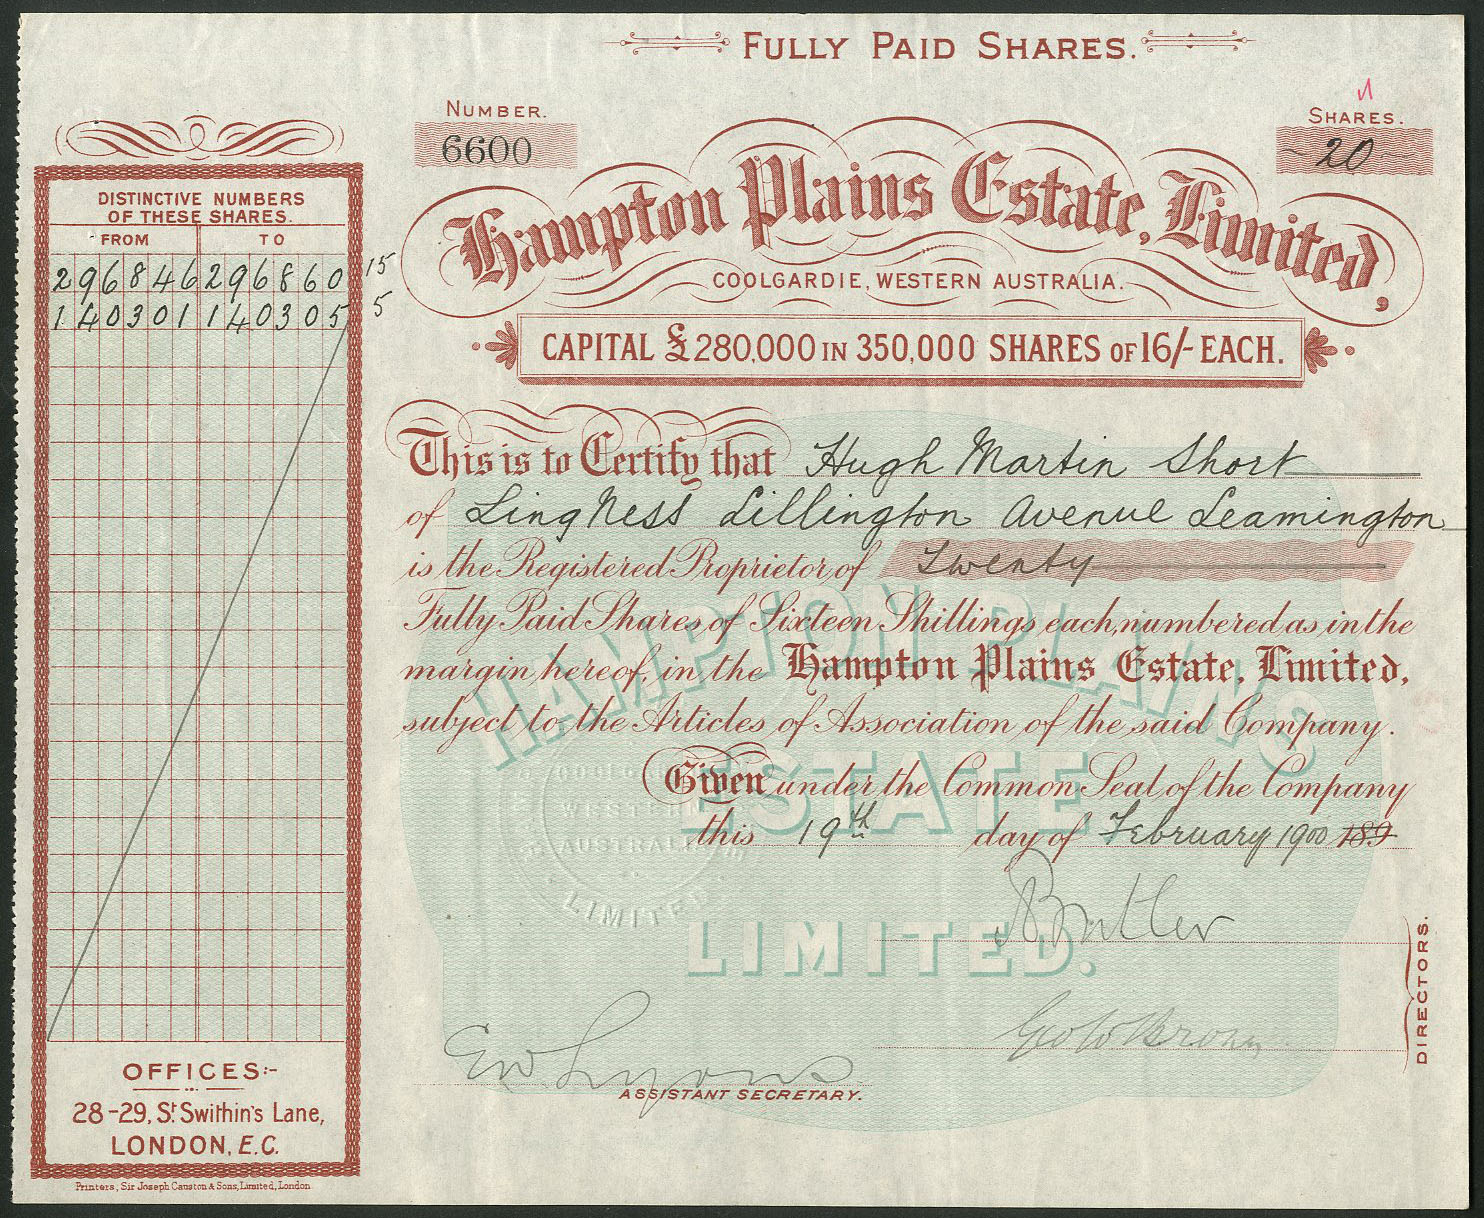 FULLY PAID SHARES.
NUMBER.
6600
SHARES.
20
Hampton Plains Estate, Limited,
COOLGARDIE, WESTERN AUSTRALIA.
CAPITAL £280,000 IN 350,000 SHARES OF 16/- EACH.
DISTINCTIVE NUMBERS
OF THESE SHARES.
FROM TO
296846 296860 15
140301 140305 5
This is to Certify that Hugh Martin Short
of Ling Ness Lillington Avenue Leamington
is the Registered Proprietor of Twenty
Fully Paid Shares of Sixteen Shillings each, numbered as in the
margin hereof, in the Hampton Plains Estate, Limited,
subject to the Articles of Association of the said Company.
Given under the Common Seal of the Company
this 19th day of February 1900 189
HAMPTON PLAINS
ESTATE
LIMITED.
COOLGARDIE
WESTERN
AUSTRALIA
LIMITED
Butler
Geo W Brown
DIRECTORS.
EW Lyons
ASSISTANT SECRETARY.
OFFICES:-
28-29, St. Swithin's Lane,
LONDON, E.C.
Printers, Sir Joseph Causton & Sons, Limited, London